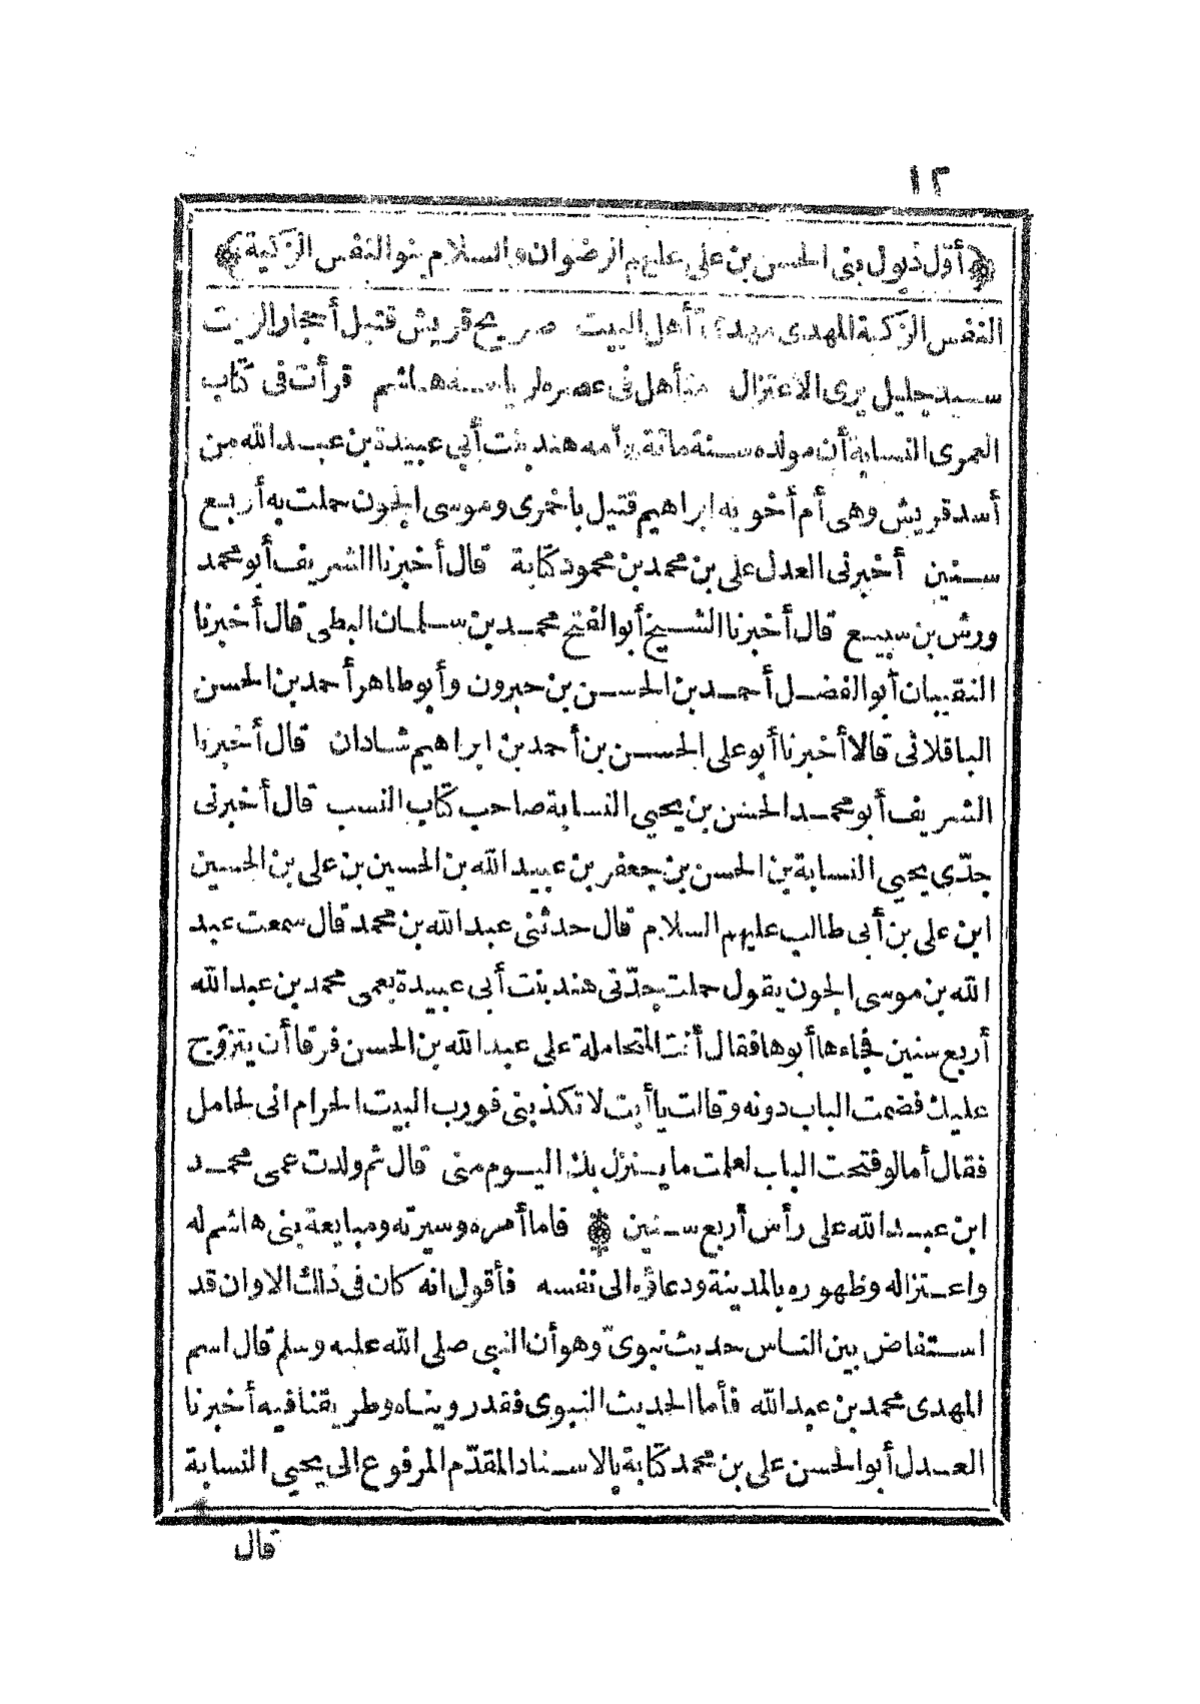 ١٢
﴿أوّل ذيول بنى الحسن بن على عليهم الرضوان والسلام بنو النفس الزكية﴾
النفس الزكية المهدى مهدى أهل البيت صريح قريش قتيل أحجار الزيت
سيد جليل يرى الاعتزال متأهل فى عصره لرياسة هاشم قرأت فى كتاب
العمرى النسابة أن مولده سنة مائة وأمه هند بنت أبى عبيدة بن عبد الله من
أسد قريش وهى أم أخويه ابراهيم قتيل باخمرى وموسى الجون حملت به أربع
سنين أخبرنى العدل على بن محمد بن محمود كتابة قال أخبرنا الشريف أبو محمد
ورش بن سبيع قال أخبرنا الشيخ أبو الفتح محمد بن سلمان البطى قال أخبرنا
النقيبان أبو الفضل أحمد بن الحسن بن حيرون وأبو طاهر أحمد بن الحسن
الباقلانى قالا أخبرنا أبو على الحسن بن أحمد بن ابراهيم شادان قال أخبرنا
الشريف أبو محمد الحسن بن يحيى النسابة صاحب كتاب النسب قال أخبرنى
جدّى يحيى النسابة بن الحسن بن جعفر بن عبيد الله بن الحسين بن على بن الحسين
ابن على بن أبى طالب عليهم السلام قال حدثنى عبد الله بن محمد قال سمعت عبد
الله بن موسى الجون يقول حملت جدّتى هند بنت أبى عبيدة بعمى محمد بن عبد الله
أربع سنين فجاءها أبوها فقال أنت المتحاملة على عبد الله بن الحسن فرقا أن يتزوّج
عليك فضمت الباب دونه وقالت يا أبت لا تكذبنى فورب البيت الحرام انى لحامل
فقال أما لو فتحت الباب لعلمت ما ينزل بك اليوم منى قال ثم ولدت عمى محمد
ابن عبد الله على رأس أربع سنين فاما أمره وسيرته ومبايعة بنى هاشم له
واعتزاله وظهوره بالمدينة ودعاؤه الى نفسه فأقول انه كان فى ذلك الاوان قد
استفاض بين الناس حديث نبوىّ وهو أن النبى صلى الله عليه وسلم قال اسم
المهدى محمد بن عبد الله فأما الحديث النبوى فقد رويناه وطريقنا فيه أخبرنا
العدل أبو الحسن على بن محمد كتابة بالاسناد المقدّم المرفوع الى يحيى النسابة
قال